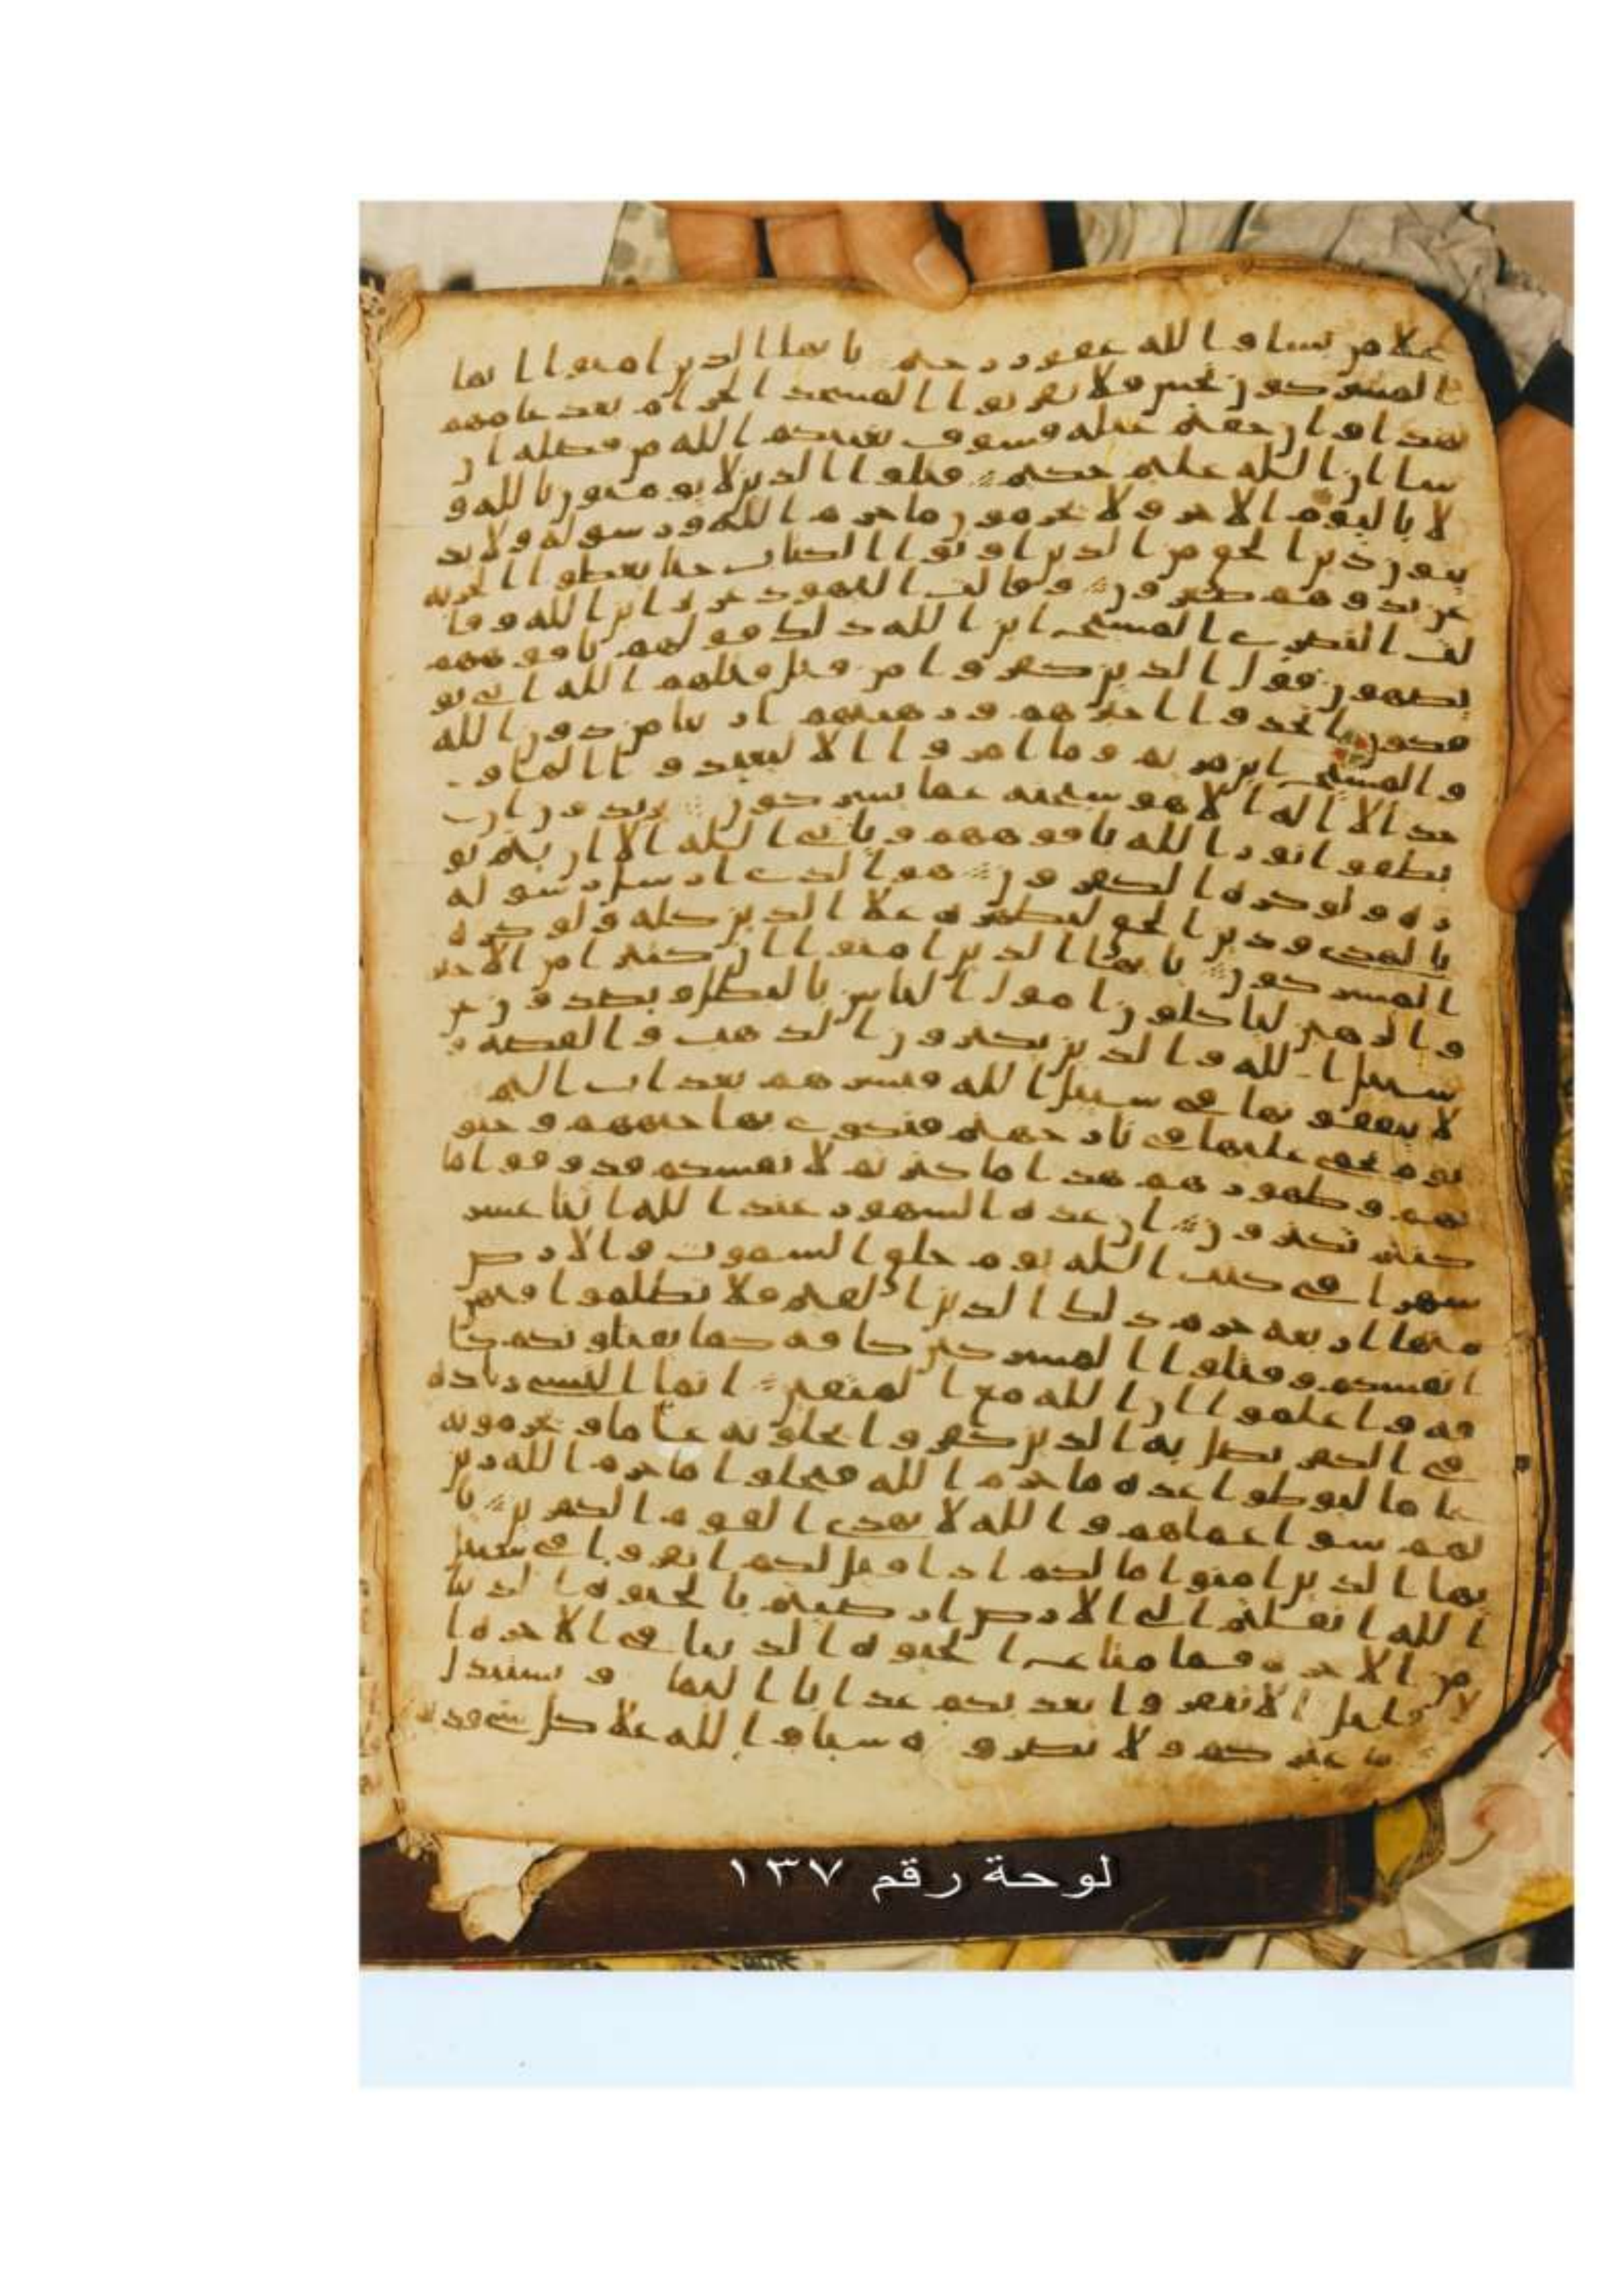 علا من يشا و الله غفور رحيم يايها الذين امنوا انما
المشركون نجس فلا يقربوا المسجد الحرام بعد عامهم
هذا وان خفتم عيله فسوف يغنيكم الله من فضله ان
شا ان الله عليم حكيم قتلوا الذين لا يومنون بالله و
لا باليوم الاخر ولا يحرمون ما حرم الله ورسوله ولا يد
ينون دين الحق من الذين اوتوا الكتاب حتا يعطوا الجزيه
عن يد وهم صغرون وقالت اليهود عزير ابن الله وقا
لت النصرى المسيح ابن الله ذلك قولهم بافوههم
يضهون قول الذين كفروا من قبل قتلهم الله انى يو
فكون اتخذوا احبرهم ورهبنهم اربابا من دون الله
والمسيح ابن مريم وما امروا الا ليعبدوا الها و
حدا لا اله الا هو سبحنه عما يشركون يريدون ان
يطفوا نور الله بافوههم ويابى الله الا ان يتم نو
ره ولو كره الكفرون هو الذى ارسل رسوله
بالهدى ودين الحق ليظهره علا الدين كله ولو كره
المشركون يايها الذين امنوا ان كثيرا من الاحبر
والرهبن لياكلون امول الناس بالبطل ويصدون عن
سبيل الله والذين يكنزون الذهب والفضه و
لا ينفقونها في سبيل الله فبشرهم بعذاب اليم
يوم يحمى عليها في نار جهنم فتكوى بها جبههم وجنو
بهم وظهورهم هذا ما كنزتم لانفسكم فذوقوا ما
كنتم تكنزون ان عده الشهور عند الله اثنا عشر
شهرا في كتب الله يوم خلق السموت والارض
منها اربعه حرم ذلك الدين القيم فلا تظلموا فيهن
انفسكم وقتلوا المشركين كافه كما يقتلونكم كا
فه واعلموا ان الله مع المتقين انما النسي زياده
في الكفر يضل به الذين كفروا يحلونه عاما ويحرمونه
عاما ليوطوا عده ما حرم الله فيحلوا ما حرم الله زين
لهم سوا اعملهم والله لا يهدى القوم الكفرين يا
يها الذين امنوا ما لكم اذا قيل لكم انفروا في سبيل
الله اثقلتم الى الارض ارضيتم بالحيوه الدنيا
من الاخره فما متاع الحيوه الدنيا في الاخره ا
لا قليل الا تنفروا يعذبكم عذابا اليما و يستبدل
ما غيركم ولا تضروه شيا والله علا كل شي قدير
لوحة رقم ١٣٧